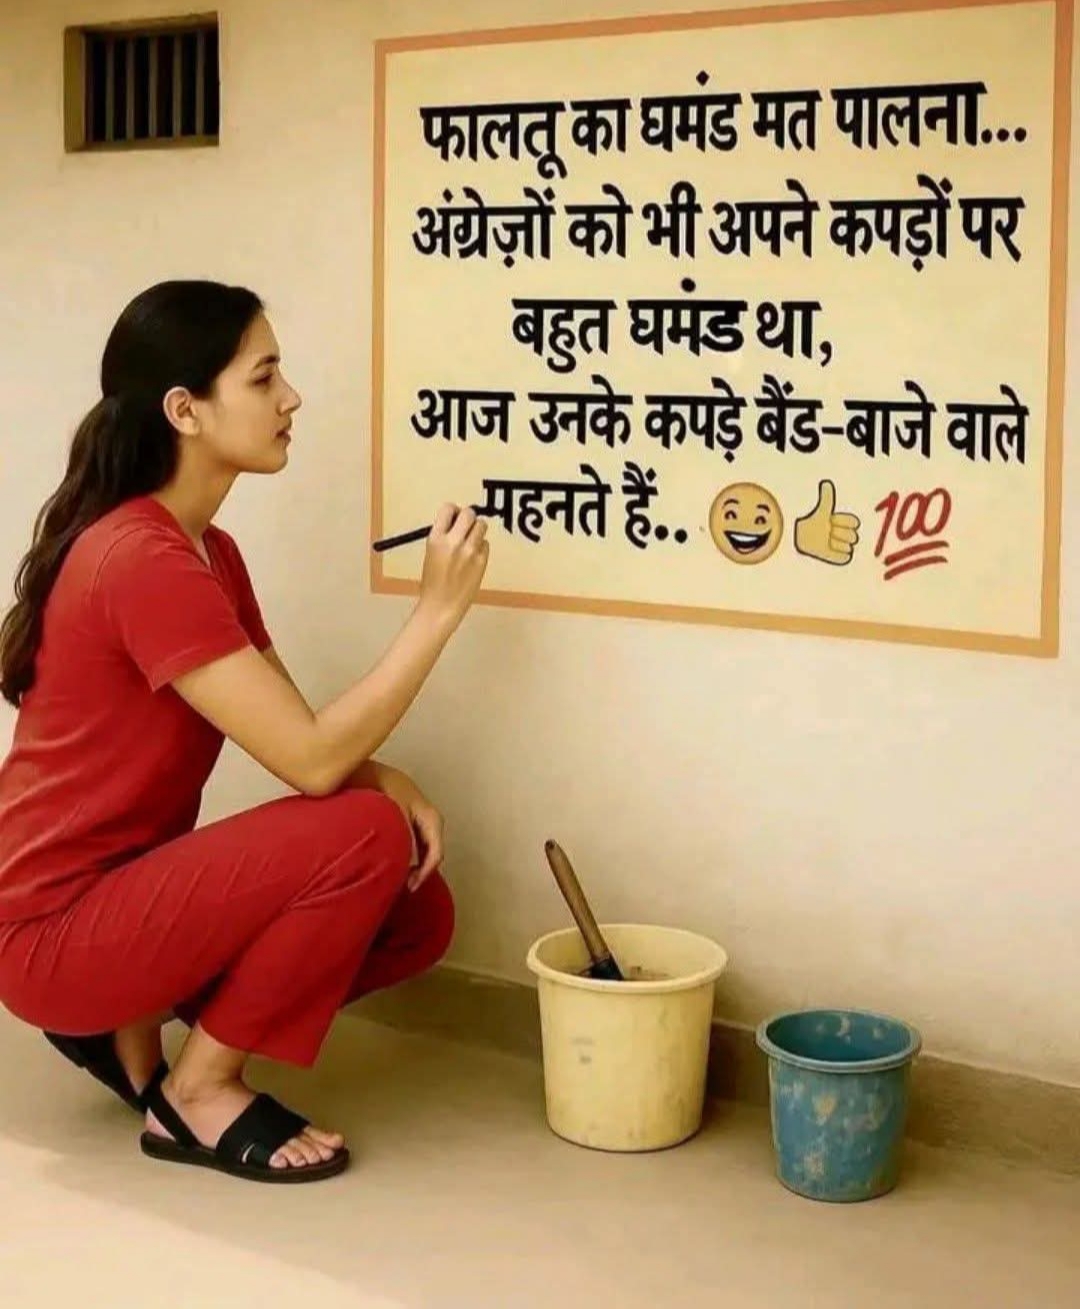 फालतू का घमंड मत पालना...
अंग्रेज़ों को भी अपने कपड़ों पर
बहुत घमंड था,
आज उनके कपड़े बैंड-बाजे वाले
पहनते हैं.. 😄👍💯